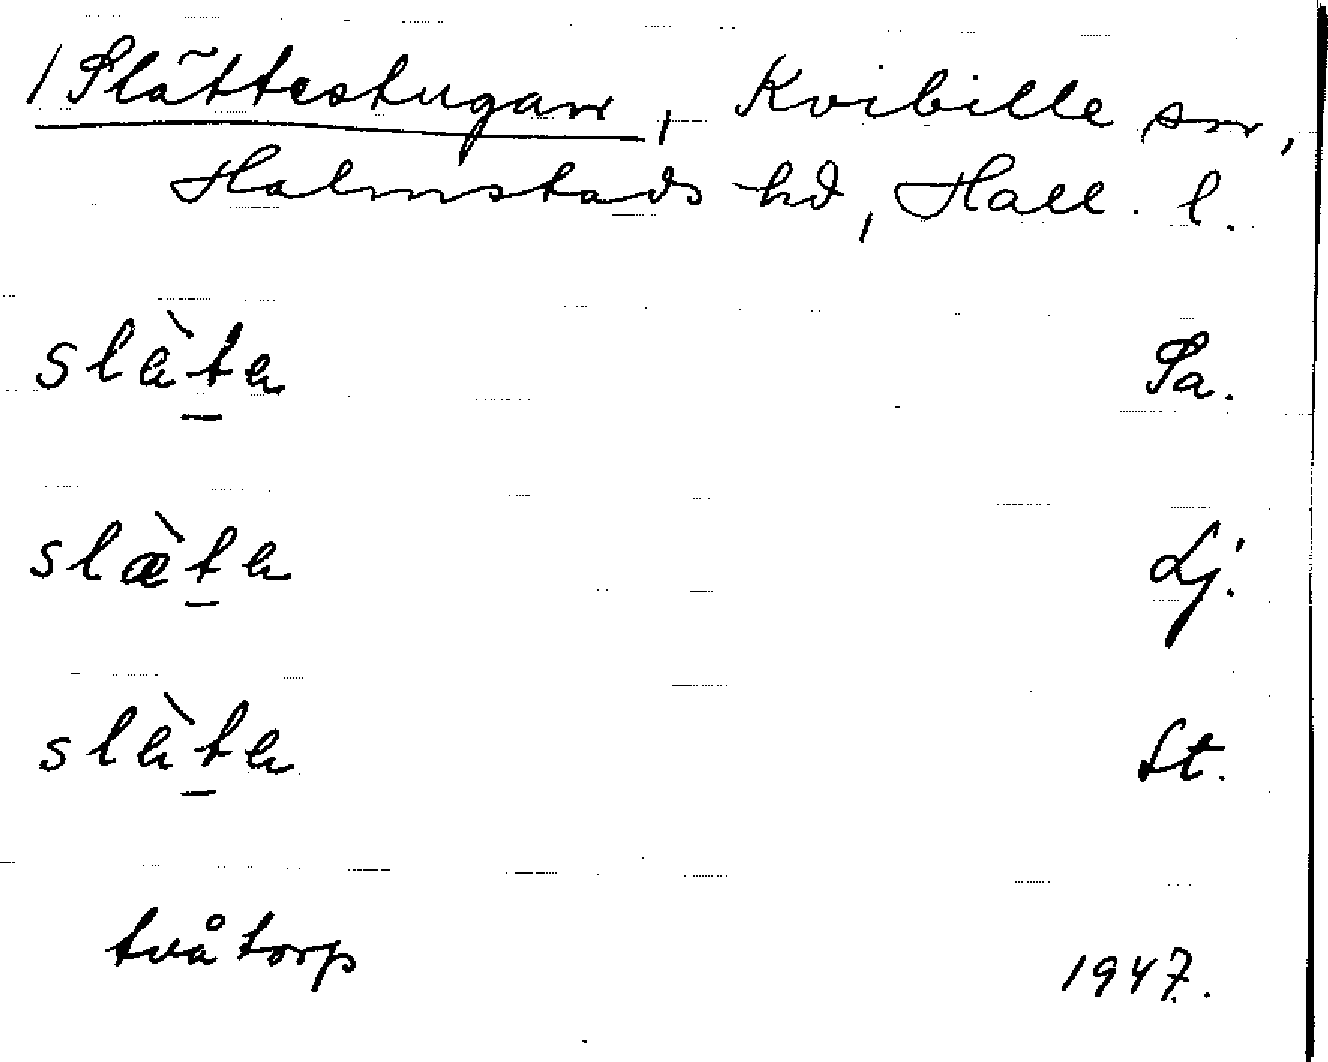 / Slättestugan, Kvibille sn,
Halmstads hd, Hall. l.
slä̀ta Sa.
slæ̀ta Lj.
slä̀ta St.
två torp 1947.